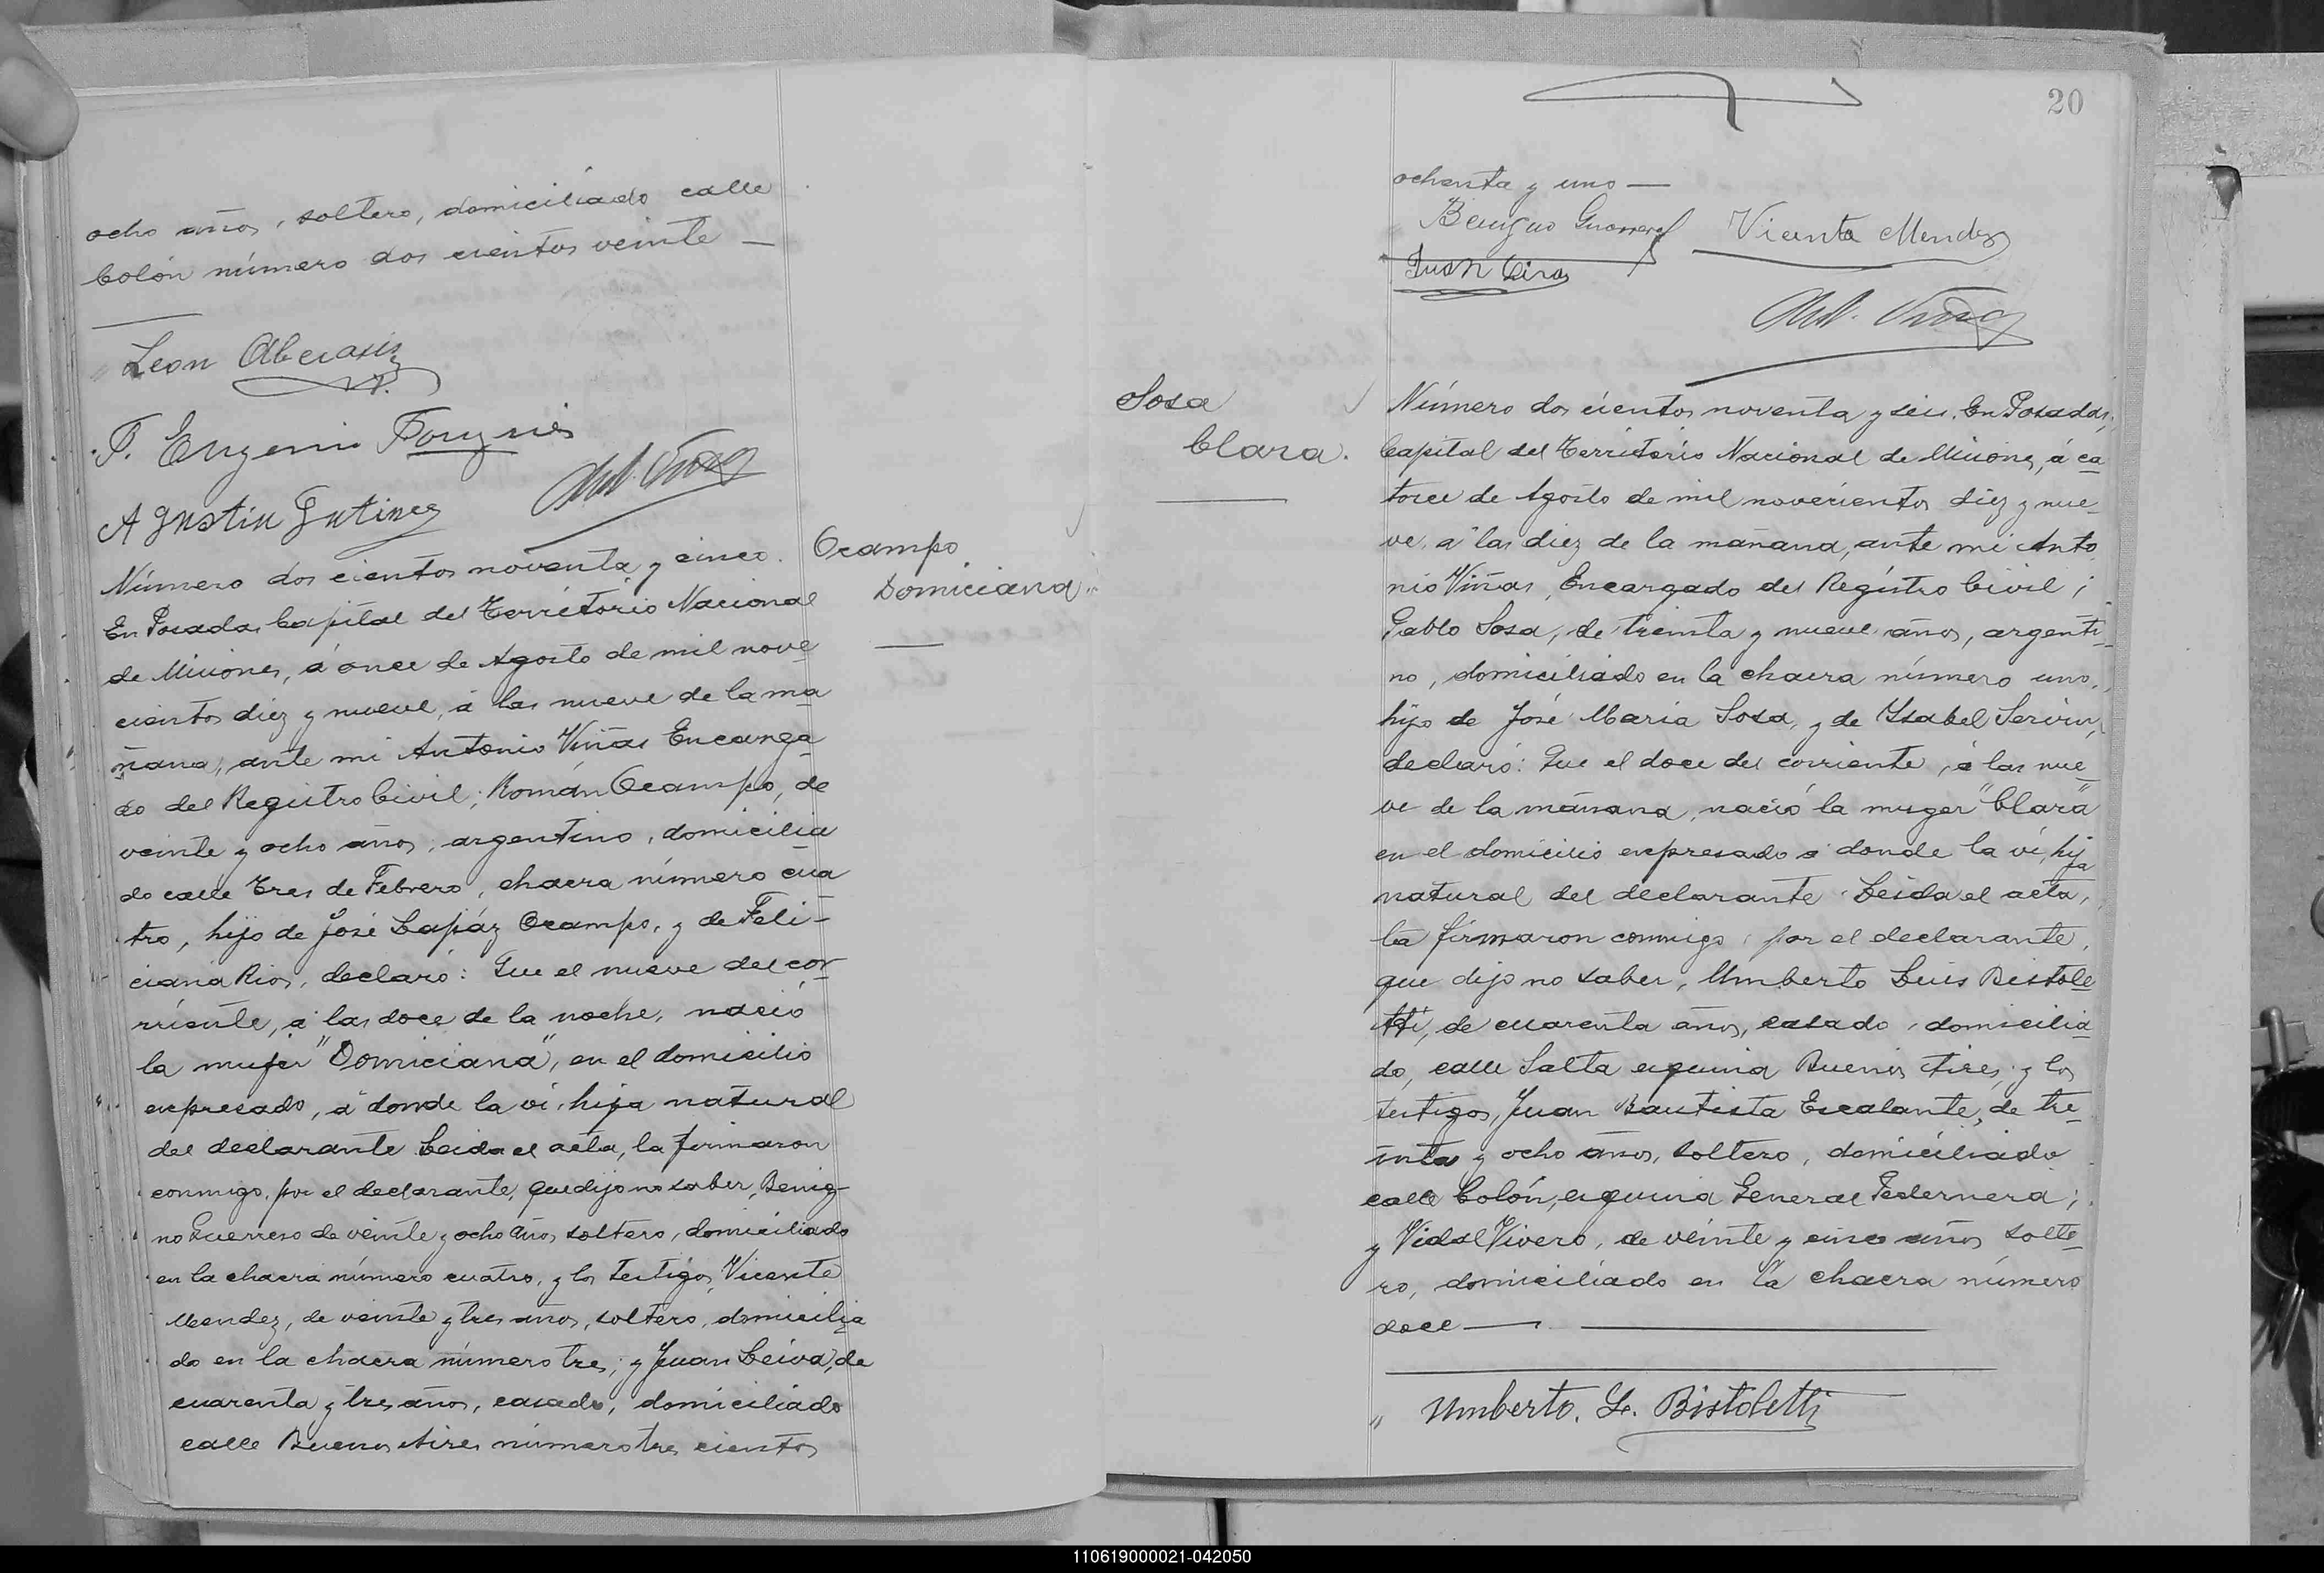 ocho años, soltero, domiciliado calle
Colón número dos cientos veinte —
Leon
P. Eugenio
Agustin Gutinez
Número dos cientos noventa y cinco.
En Posadas Capital del Territorio Nacional
de Misiones, á once de Agosto de mil nove
cientos diez y nueve, á las nueve de la ma
ñana, ante mi Antonio Viñas Encarga
do del Registro Civil; Román Ocampo, de
veinte y ocho años, argentino, domicilia
do calle Tres de Febrero, chacra número cua
tro, hijo de José Lapáz Ocampo, y de Feli-
ciana Rios, declaró: Que el nueve del cor-
rriente, á las doce de la noche, nació
la mujer "Domiciana", en el domicilio
expresado, á donde la vi, hija natural
del declarante Leida el acta, la firmaron
conmigo, por el declarante, que dijo no saber, Benig-
no Guerrero de veinte y ocho años soltero, domiciliado
en la chacra número cuatro, y los testigos, Vicente
Mendez, de veinte y tres años, soltero, domicilia
do en la chacra número tres; y Juan Leiva, de
cuarenta y tres años, casado, domiciliado
calle Buenos Aires número tres cientos
Ocampo
Domiciana
20
ochenta y uno —
Benigno Guerrero Vicente Mendez
Juan
Sosa
Clara.
Número dos cientos noventa y seis. En Posadas,
Capital del Territorio Nacional de Misiones, á ca
torce de Agosto de mil novecientos diez y nue-
ve, á las diez de la mañana, ante mi Anto
nio Viñas, Encargado del Registro Civil;
Pablo Sosa, de treinta y nueve años, argenti-
no, domiciliado en la chacra número uno,
hijo de José Maria Sosa, y de Ysabel Servin,
declaró: Que el doce del corriente, á las nue-
ve de la mañana, nació la muger "Clara"
en el domicilio expresado á donde la vi, hija
natural del declarante. Leida el acta,
la firmaron conmigo, por el declarante,
que dijo no saber, Umberto Luis Bistole
tti, de cuarenta años, casado, domicilia
do, calle Salta esquina Buenos Aires; y los
testigos, Juan Bautista Escalante, de tre-
inta y ocho años, soltero, domiciliado
calle Colón, esquina General Pedernera;
y Vidal Vivero, de veinte y cinco años solte-
ro, domiciliado en la chacra número
doce —
Umberto. L. Bistoletti
110619000021-042050